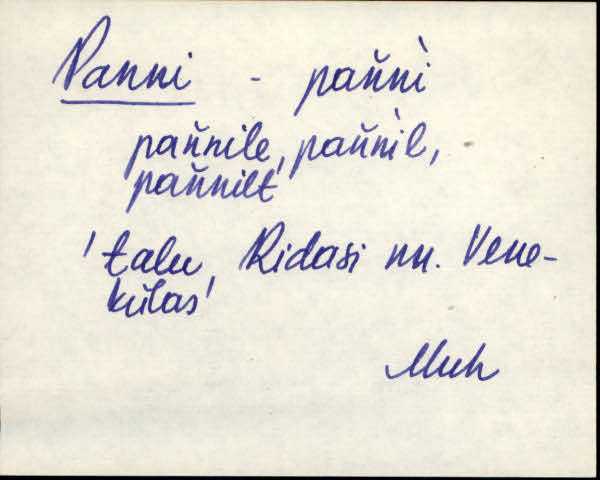 Panni - pan̆nì
pan̆nile, pan̆nìl,
pan̆nilt
'talu, Ridasi nn. Vene-
külas'
Muh